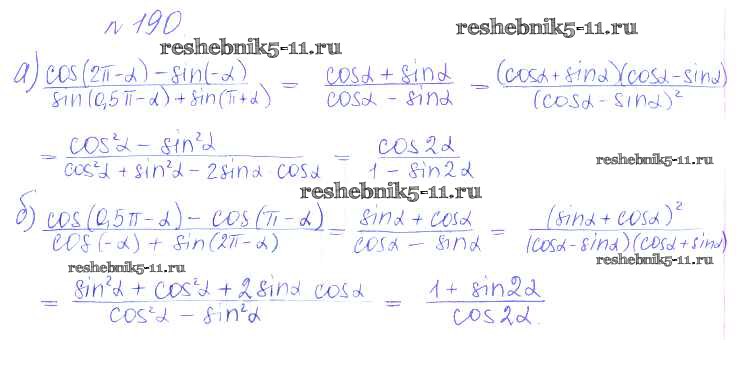 № 190
reshebnik5-11.ru
reshebnik5-11.ru
а) (cos(2π-α) - sin(-α))/(sin(0,5π-α) + sin(π+α)) = (cosα + sinα)/(cosα - sinα) = ((cosα + sinα)(cosα - sinα))/((cosα - sinα)²)
= (cos²α - sin²α)/(cos²α + sin²α - 2sinα cosα) = cos2α/(1 - sin2α)
reshebnik5-11.ru
reshebnik5-11.ru
б) (cos(0,5π-α) - cos(π-α))/(cos(-α) + sin(2π-α)) = (sinα + cosα)/(cosα - sinα) = ((sinα + cosα)²)/((cosα - sinα)(cosα + sinα))
reshebnik5-11.ru
reshebnik5-11.ru
= (sin²α + cos²α + 2sinα cosα)/(cos²α - sin²α) = (1 + sin2α)/cos2α.